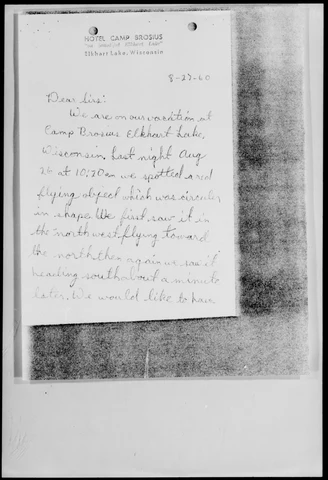 HOTEL CAMP BROSIUS
"on beautiful Elkhart Lake"
Elkhart Lake, Wisconsin
8-27-60
Dear Sirs:
We are on our vacation at
Camp Brosius Elkhart Lake,
Wisconsin. Last night Aug
26 at 10:20 we spotted a red
flying object which was circular
in shape. We first saw it in
the northwest flying toward
the north then again we saw it
heading south about a minute
later. We would like to have